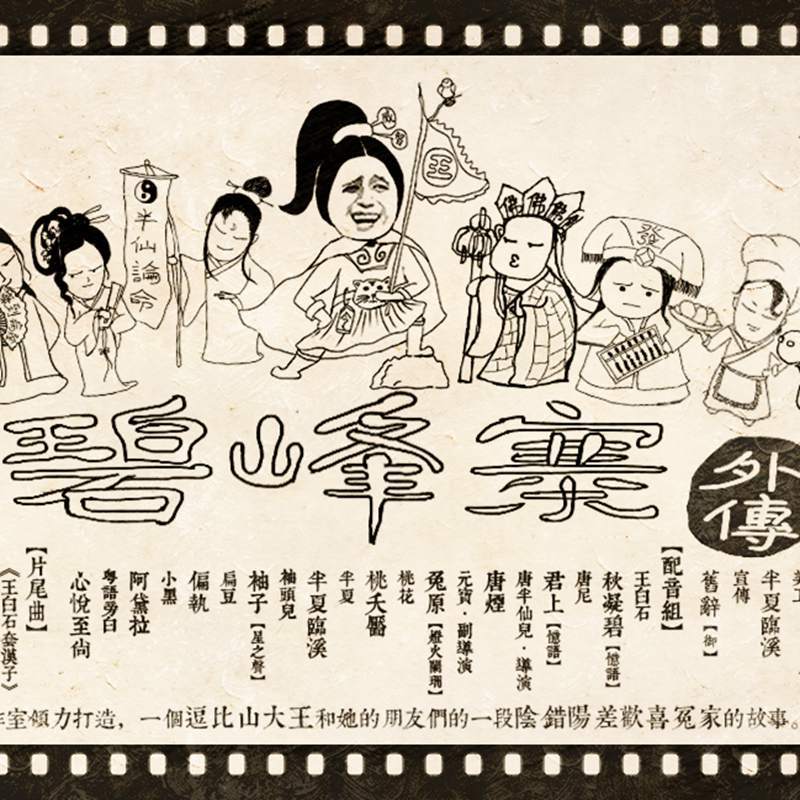 半仙論命
王
佛佛
發
碧峰寨
外傳
半夏臨溪
宣傳
舊辭【御】
【配音組】
王白石
秋凝碧【憶語】
唐尼
君上【憶語】
唐半仙兒·導演
唐煙
元寶·副導演
冤原【燈火闌珊】
桃花
桃夭靨
半夏
半夏臨溪
袖頭兒
柚子【星之聲】
扁豆
偏執
小黑
阿黛拉
粵語旁白
心悅至尚
【片尾曲】
《王白石套漢子》
室傾力打造，一個逗比山大王和她的朋友們的一段陰錯陽差歡喜冤家的故事。